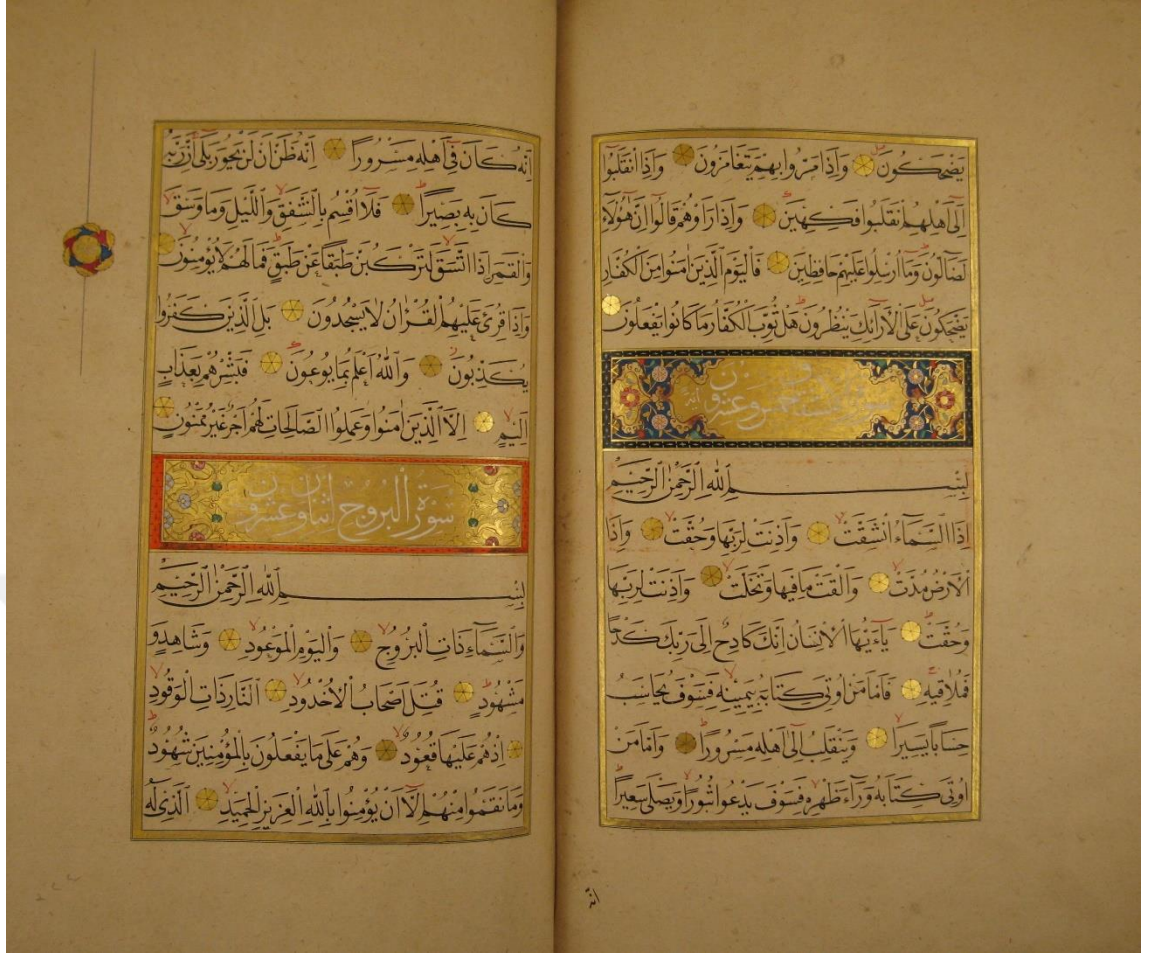 يَضْحَكُونَ وَاِذَا مَرُّوا بِهِمْ يَتَغَامَزُونَ وَاِذَا انْقَلَبُوا
اِلٰٓى اَهْلِهِمُ انْقَلَبُوا فَكِهِينَ وَاِذَا رَاَوْهُمْ قَالُوا اِنَّ هٰٓؤُلَاۤءِ
لَضَالُّونَ وَمَا اُرْسِلُوا عَلَيْهِمْ حَافِظِينَ فَالْيَوْمَ الَّذِينَ اٰمَنُوا مِنَ الْكُفَّارِ
يَضْحَكُونَ عَلَى الْاَرَاۤئِكِ يَنْظُرُونَ هَلْ ثُوِّبَ الْكُفَّارُ مَا كَانُوا يَفْعَلُونَ
خمس وعشرون
بِسْمِ اللّٰهِ الرَّحْمٰنِ الرَّحِيمِ
اِذَا السَّمَاۤءُ انْشَقَّتْ وَاَذِنَتْ لِرَبِّهَا وَحُقَّتْ وَاِذَا
الْاَرْضُ مُدَّتْ وَاَلْقَتْ مَا فِيهَا وَتَخَلَّتْ وَاَذِنَتْ لِرَبِّهَا
وَحُقَّتْ يَاۤءَيُّهَا الْاِنْسَانُ اِنَّكَ كَادِحٌ اِلٰى رَبِّكَ كَدْحًا
فَمُلَاقِيهِ فَاَمَّا مَنْ اُوتِىَ كِتَابَهُ بِيَمِينِهِ فَسَوْفَ يُحَاسَبُ
حِسَابًا يَسِيرًا وَيَنْقَلِبُ اِلٰٓى اَهْلِهِ مَسْرُورًا وَاَمَّا مَنْ
اُوتِىَ كِتَابَهُ وَرَاۤءَ ظَهْرِهِ فَسَوْفَ يَدْعُوا ثُبُورًا وَيَصْلٰى سَعِيرًا
انه
اِنَّهُ كَانَ فِىٓ اَهْلِهِ مَسْرُورًا اِنَّهُ ظَنَّ اَنْ لَنْ يَحُورَ بَلٰٓى اِنَّ رَبَّهُ
كَانَ بِهِ بَصِيرًا فَلَآ اُقْسِمُ بِالشَّفَقِ وَالَّيْلِ وَمَا وَسَقَ
وَالْقَمَرِ اِذَا اتَّسَقَ لَتَرْكَبُنَّ طَبَقًا عَنْ طَبَقٍ فَمَا لَهُمْ لَا يُؤْمِنُونَ
وَاِذَا قُرِئَ عَلَيْهِمُ الْقُرْاٰنُ لَا يَسْجُدُونَ بَلِ الَّذِينَ كَفَرُوا
يُكَذِّبُونَ وَاللّٰهُ اَعْلَمُ بِمَا يُوعُونَ فَبَشِّرْهُمْ بِعَذَابٍ
اَلِيمٍ اِلَّا الَّذِينَ اٰمَنُوا وَعَمِلُوا الصَّالِحَاتِ لَهُمْ اَجْرٌ غَيْرُ مَمْنُونٍ
سورة البروج اثنان وعشرون
بِسْمِ اللّٰهِ الرَّحْمٰنِ الرَّحِيمِ
وَالسَّمَاۤءِ ذَاتِ الْبُرُوجِ وَالْيَوْمِ الْمَوْعُودِ وَشَاهِدٍ وَ
مَشْهُودٍ قُتِلَ اَصْحَابُ الْاُخْدُودِ النَّارِ ذَاتِ الْوَقُودِ
اِذْ هُمْ عَلَيْهَا قُعُودٌ وَهُمْ عَلٰى مَا يَفْعَلُونَ بِالْمُؤْمِنِينَ شُهُودٌ
وَمَا نَقَمُوا مِنْهُمْ اِلَّآ اَنْ يُؤْمِنُوا بِاللّٰهِ الْعَزِيزِ الْحَمِيدِ الَّذِى لَهُ